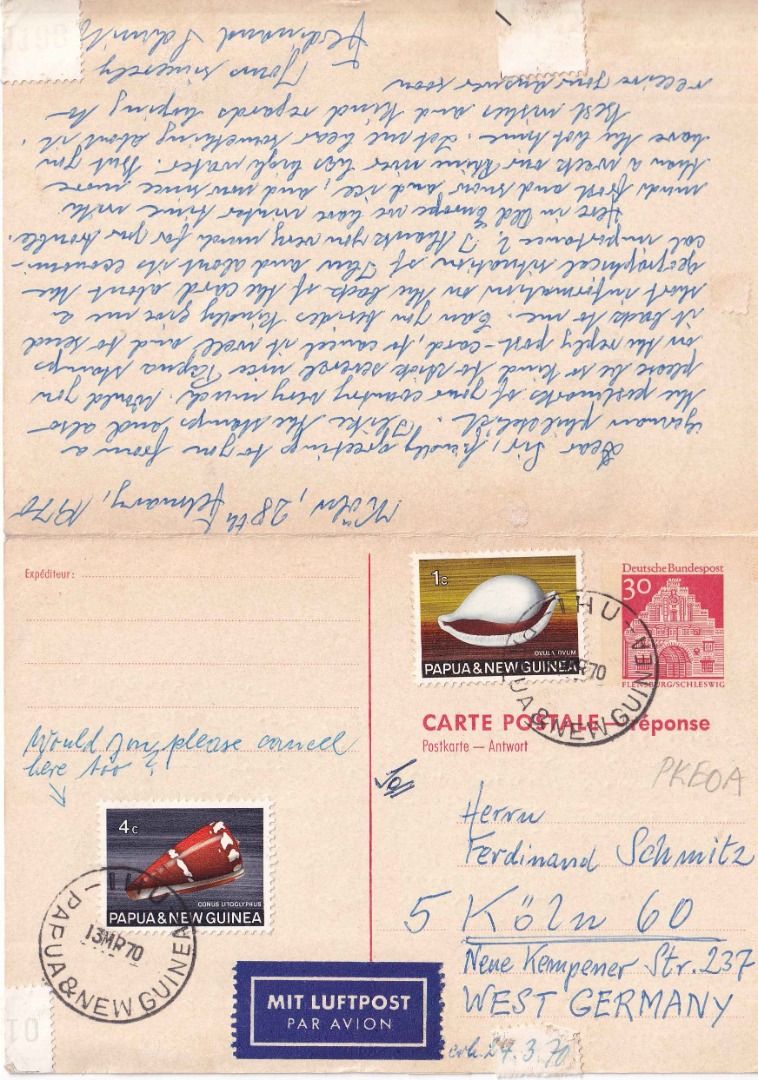 Köln, 28th February, 1970
Dear Sir, friendly greetings to you from a
German philatelist. I like the stamps and also
the postmarks of your country very much. Would you
please be so kind to stick several nice Papua stamps
on the reply post-card, to cancel it well and to send
it back to me. Can you besides kindly give me a
short information on the back of the card about the
geographical situation of Thu and about its economi-
cal importance? I thank you very much for your trouble.
Here in Old Europe we have winter time with
much frost and snow and ice, and now since more
than a week our Rhine river has high water. But you
have the hot time. Let me hear something about it.
Best wishes and kind regards hoping to
receive your answer soon
Yours sincerely
Ferdinand Schmitz
Expéditeur:
Would you please cancel
here too?
4c
CONUS LITOGLYPHUS
PAPUA & NEW GUINEA
IHU
13MR70
PAPUA & NEW GUINEA
MIT LUFTPOST
PAR AVION
1c
OVULA OVUM
PAPUA & NEW GUINEA
IHU
MR70
PAPUA & NEW GUINEA
Deutsche Bundespost
30
FLENSBURG/SCHLESWIG
CARTE POSTALE — réponse
Postkarte — Antwort
PKEOA
Herrn
Ferdinand Schmitz
5 Köln 60
Neue Kempener Str. 237
WEST GERMANY
erh. 24.3.70